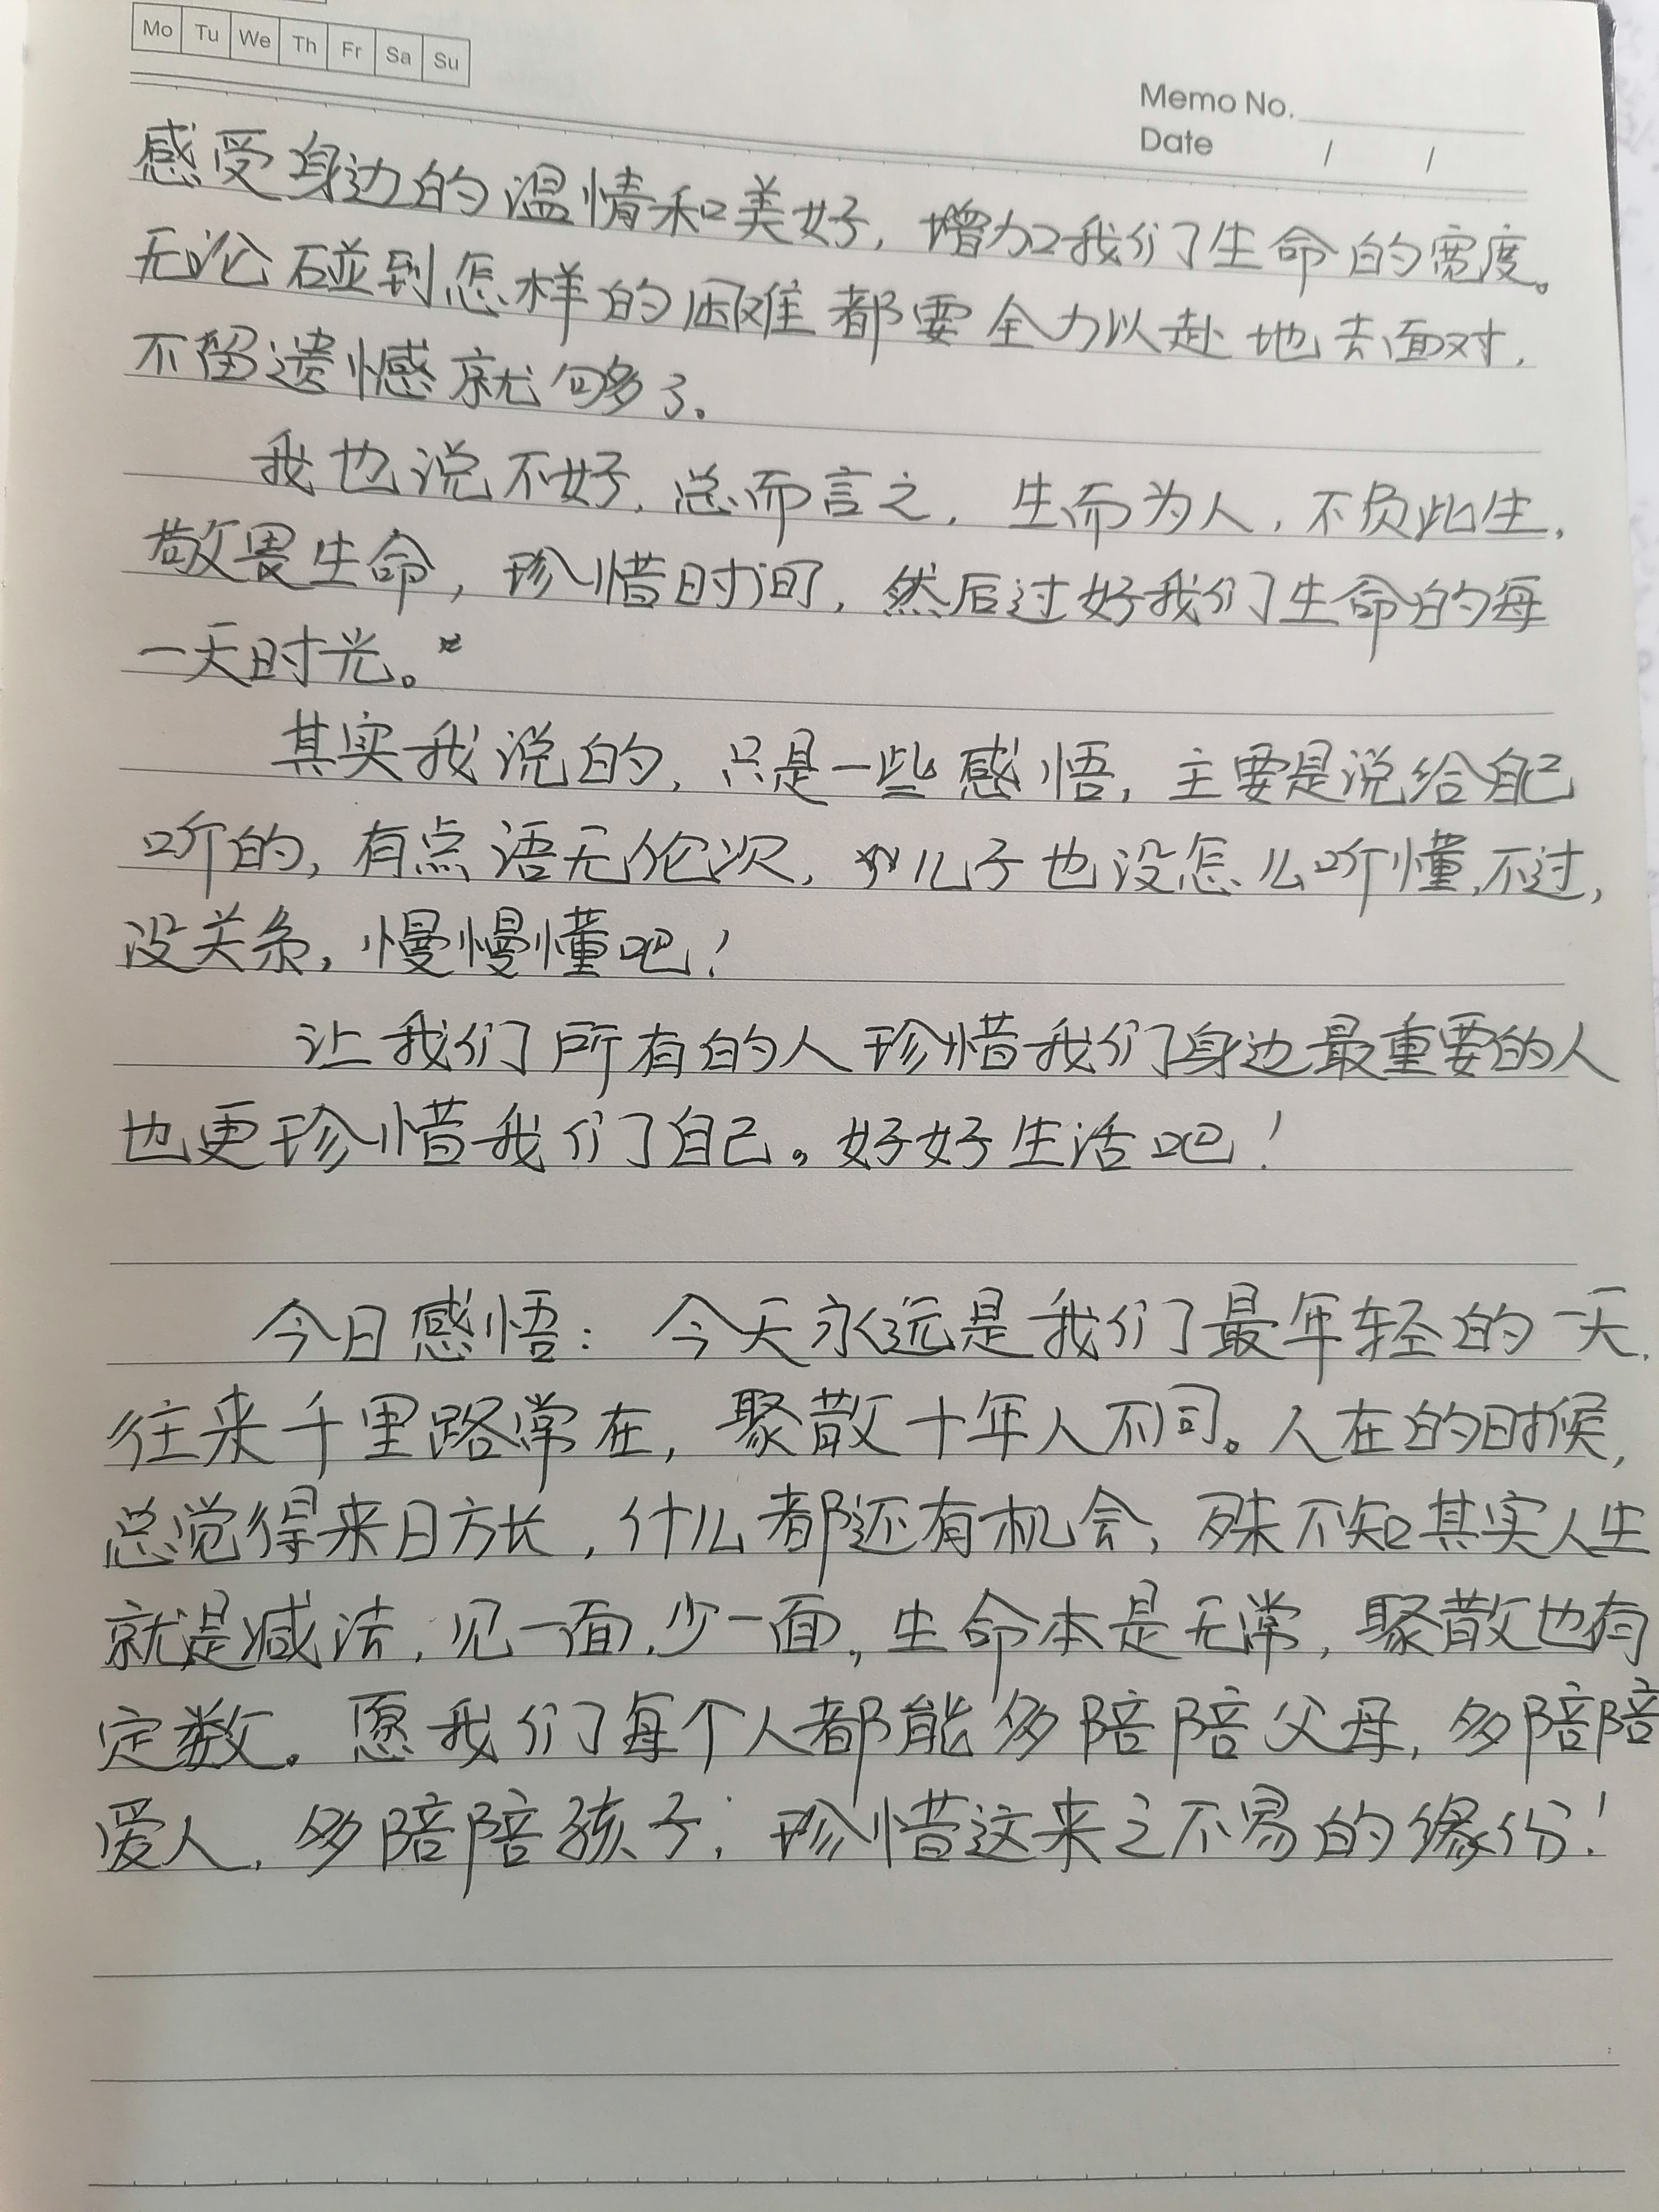 Mo Tu We Th Fr Sa Su
Memo No.
Date / /
感受身边的温情和美好，增加我们生命的宽度。
无论碰到怎样的困难都要全力以赴地去面对，
不留遗憾就够了。
我也说不好，总而言之，生而为人，不负此生，
敬畏生命，珍惜时间，然后过好我们生命的每
一天时光。
其实我说的，只是一些感悟，主要是说给自己
听的，有点语无伦次，儿子也没怎么听懂，不过，
没关系，慢慢懂吧！
让我们所有的人珍惜我们身边最重要的人
也更珍惜我们自己。好好生活吧！
今日感悟：今天永远是我们最年轻的一天，
往来千里路常在，聚散十年人不同。人在的时候，
总觉得来日方长，什么都还有机会，殊不知其实人生
就是减法，见一面，少一面，生命本是无常，聚散也有
定数。愿我们每个人都能多陪陪父母，多陪陪
爱人，多陪陪孩子，珍惜这来之不易的缘份！